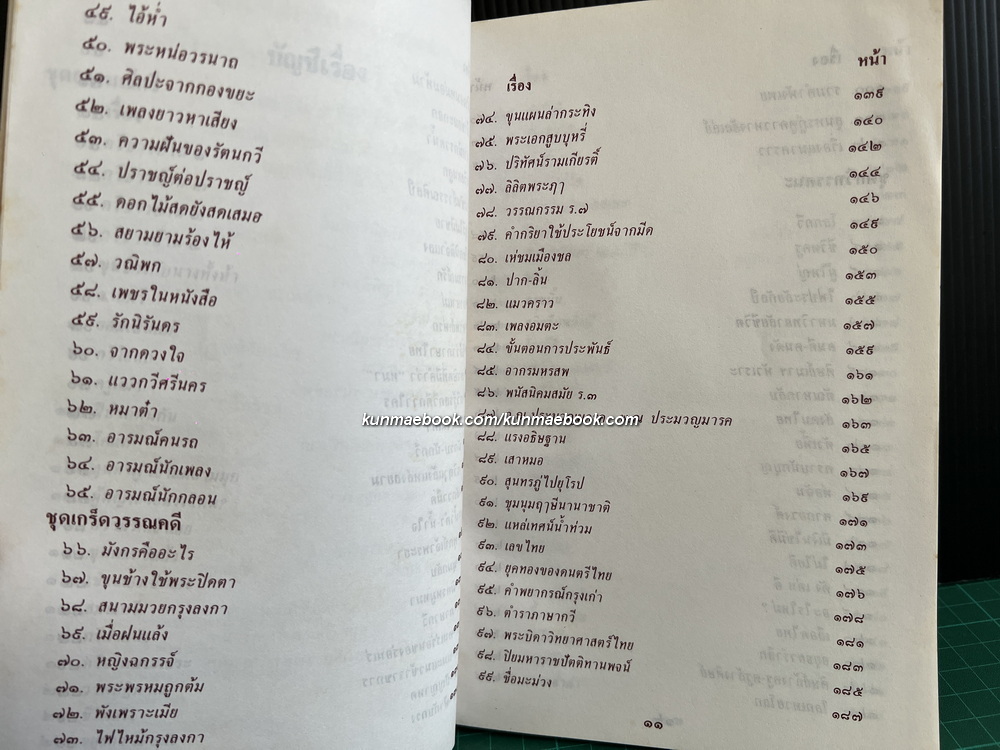 ๔๙. ไอ้ห่ำ
๕๐. พระหน่อวรนาถ
๕๑. ศิลปะจากกองขยะ
๕๒. เพลงยาวหาเสียง
๕๓. ความฝันของรัตนกวี
๕๔. ปราชญ์ต่อปราชญ์
๕๕. ดอกไม้สดยังสดเสมอ
๕๖. สยามยามร้องไห้
๕๗. วณิพก
๕๘. เพชรในหนังสือ
๕๙. รักนิรันดร
๖๐. จากดวงใจ
๖๑. แววกวีศรีนคร
๖๒. หมาตำ๋
๖๓. อารมณ์คนรถ
๖๔. อารมณ์นักเพลง
๖๕. อารมณ์นักกลอน
ชุดเกร็ดวรรณคดี
๖๖. มังกรคืออะไร
๖๗. ขุนช้างใช้พระปิดตา
๖๘. สนามมวยกรุงลงกา
๖๙. เมื่อฝนแล้ง
๗๐. หญิงฉกรรจ์
๗๑. พระพรหมถูกต้ม
๗๒. พังเพราะเมีย
๗๓. ไฟไหม้กรุงลงกา
เรื่อง หน้า
๗๔. ขุนแผนล่ากระทิง ๑๓๙
๗๕. พระเอกสูบบุหรี่ ๑๔๐
๗๖. ปริทัศน์รามเกียรติ์ ๑๔๒
๗๗. ลิลิตพระฦๅ ๑๔๔
๗๘. วรรณกรรม ร.๗ ๑๔๖
๗๙. คำกริยาใช้ประโยชน์จากมีด ๑๔๙
๘๐. เห่ชมเมืองชล ๑๕๐
๘๑. ปาก-ลิ้น ๑๕๓
๘๒. แมวคราว ๑๕๕
๘๓. เพลงอมตะ ๑๕๗
๘๔. ขั้นตอนการประพันธ์ ๑๕๙
๘๕. อากรมหรสพ ๑๖๑
๘๖. พนัสนิคมสมัย ร.๓ ๑๖๒
๘๗. ประมวญมารค ๑๖๓
๘๘. แรงอธิษฐาน ๑๖๕
๘๙. เสาหมอ ๑๖๗
๙๐. สุนทรภู่ไปยุโรป ๑๖๙
๙๑. ชุมนุมฤๅษีนานาชาติ ๑๗๑
๙๒. แหล่เทศน์น้ำท่วม ๑๗๓
๙๓. เลขไทย ๑๗๕
๙๔. ยุคทองของดนตรีไทย ๑๗๖
๙๕. คำพยากรณ์กรุงเก่า ๑๗๘
๙๖. ตำราภาษากวี ๑๘๑
๙๗. พระบิดาวิทยาศาสตร์ไทย ๑๘๓
๙๘. ปิยมหาราชปัตติทานพจน์ ๑๘๕
๙๙. ชื่อมะม่วง ๑๘๗
๑๑
kunmaebook.com/kunmaebook.com